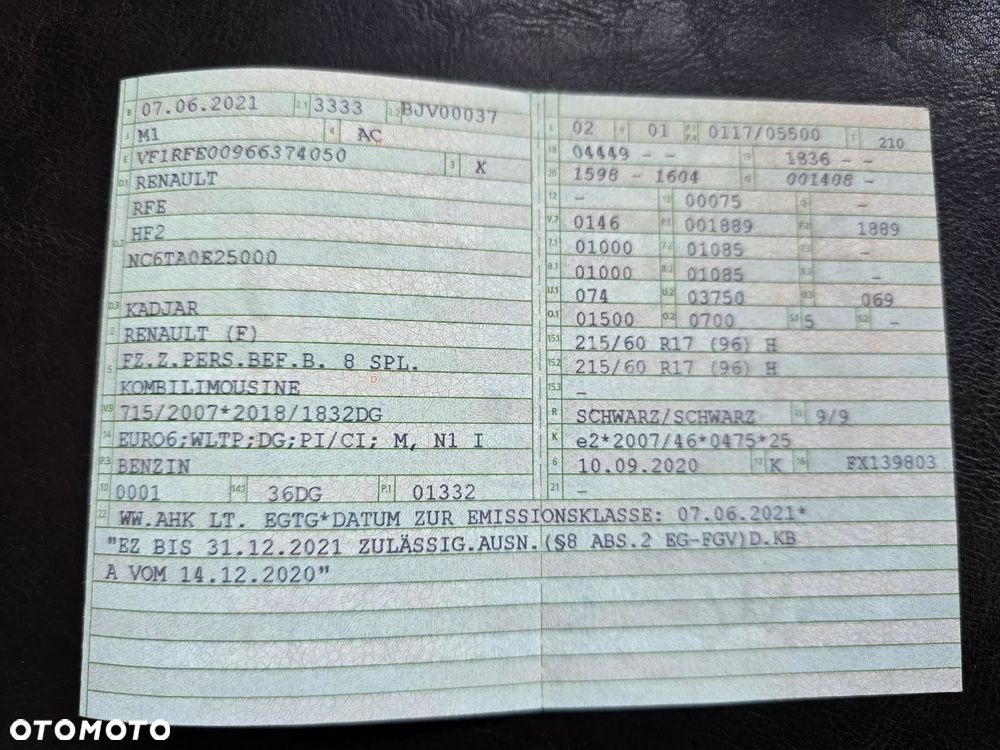 B 07.06.2021 2.1 3333 2.2 BJV00037
J M1 4 AC
E VF1RFE00966374050 3 X
D.1 RENAULT
RFE
D.2 HF2
NC6TA0E25000
D.3 KADJAR
2 RENAULT (F)
5 FZ.Z.PERS.BEF.B. 8 SPL.
KOMBILIMOUSINE
V.9 715/2007*2018/1832DG
14 EURO6;WLTP;DG;PI/CI; M, N1 I
P.3 BENZIN
10 0001 14.1 36DG P.1 01332
L 02 9 01 P.2 P.4 0117/05500 T 210
18 04449 - - 19 1836 - -
20 1598 - 1604 G 001408 -
12 - 13 00075 Q -
V.7 0146 F.1 001889 F.2 1889
7.1 01000 7.2 01085 7.3 -
8.1 01000 8.2 01085 8.3 -
U.1 074 U.2 03750 U.3 069
O.1 01500 O.2 0700 S.1 5 S.2 -
15.1 215/60 R17 (96) H
15.2 215/60 R17 (96) H
15.3 -
R SCHWARZ/SCHWARZ 11 9/9
K e2*2007/46*0475*25
6 10.09.2020 17 K 16 FX139803
21 -
22 WW.AHK LT. EGTG*DATUM ZUR EMISSIONSKLASSE: 07.06.2021*
"EZ BIS 31.12.2021 ZULÄSSIG.AUSN.(§8 ABS.2 EG-FGV)D.KB
A VOM 14.12.2020"
OTOMOTO